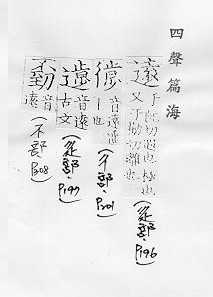 四聲篇海
遠 于阮切遐也極也
又于勌切離也
(辵部. P196)
音遠
也
(彳部. P201)
音遠
古文
(辵部. P197)
音
遠
(不部 P308)